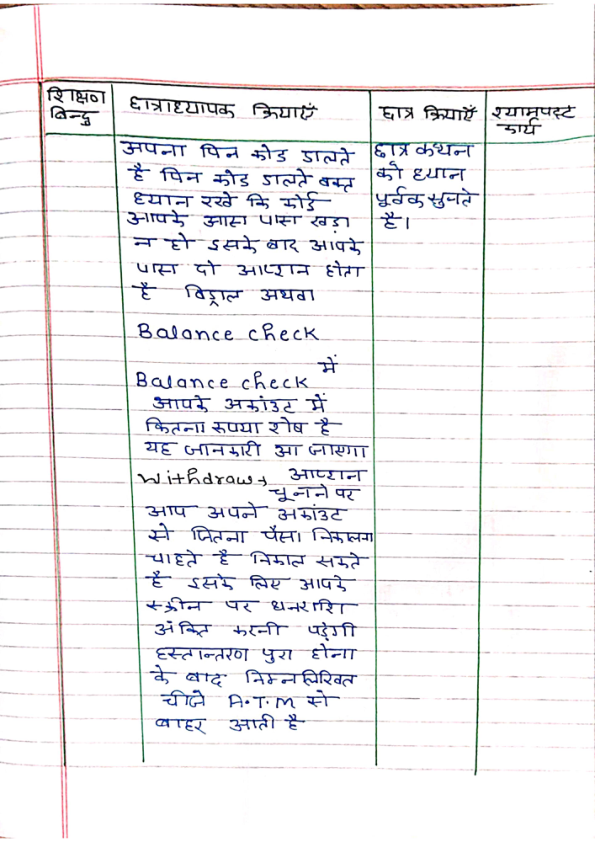 शिक्षण
बिन्दु
छात्राध्यापक क्रियाएँ
छात्र क्रियाएँ
श्यामपस्ट
कार्य
अपना पिन कोड डालते
है पिन कोड डालते बक्त
ध्यान रखे कि कोई
आपके आस पास खड़ा
न हो इसके बार आपके
पास दो आप्शन होता
है विड्राल अथवा
Balance check
में
Balance check
आपके अकांउट में
कितना रुपया शेष है
यह जानकारी आ जाएगा
Withdraw आप्शन
चूनने पर
आप अपने अकांउट
से जितना पैसा निकालना
चाहते है निकाल सकते
है इसके लिए आपके
स्क्रीन पर धनराशि
अंकित करनी पड़ेगी
हस्तान्तरण पुरा होना
के बाद निम्नलिखित
चीजे A.T.M से
बाहर आती है
छात्र कथन
को ध्यान
पूर्वक सुनते
है।